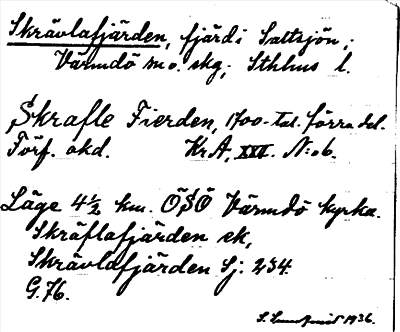 Skrävlafjärden, fjärd i Saltsjön;
Värmdö m o. skg; Sthlms l.
Skrafle Fierden, 1700-tal. förra del.
Förf. okd. KrA, XXI. N:o 6.
Läge 4½ km. ÖSÖ Värmdö kyrka.
Skräflafjärden ek,
Skrävlafjärden Sj. 234.
G. 76.
1936.